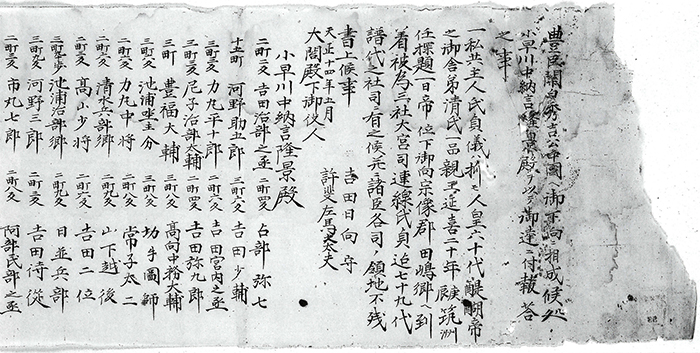 豊臣関白秀吉公中国へ御下向ニ相成候処、
小早川中納言隆景殿ゟ以御達ニ付報答
之事
一私共主人氏貞儀ハ抑々人皇六十代醍醐帝
之御舎弟清氏一品親王延喜二十年庚辰筑洲
任探題一日帝位下御向宗像郡田嶋郷へ到
着被為三社大宮司連綿氏貞迄七十九代
譜代之社司ニ有之候並諸臣各司ノ領地不残
書上候事
天正十四年五月 吉田日向守
大閤殿下御役人 許斐左馬太夫
小早川中納言隆景殿
二町二反 吉田治部之丞 二町四反 占部弥七
十五町 河野助五郎 三町一反 吉田少輔
三町三反 力丸平十郎 二町六反 吉田宮内之丞
三町三反 尼子治部太輔 二町四反 吉田弥九郎
三町 豊福大輔 三町八反 高向中務大輔
三町六反 池浦座主分 三町八反 切寺図師
二町六反 力丸中将 二町八反 常子太二
二町六反 清水六部郷 二町九反 山下越後
二町九反 高山少将 二町六反 吉田二位
三町壱歩 池浦治部郷 二町九反 日並兵部
三町九反 河野三郎 二町二反 吉田侍従
二町三反 市丸七郎 二町八反 阿部民部之丞